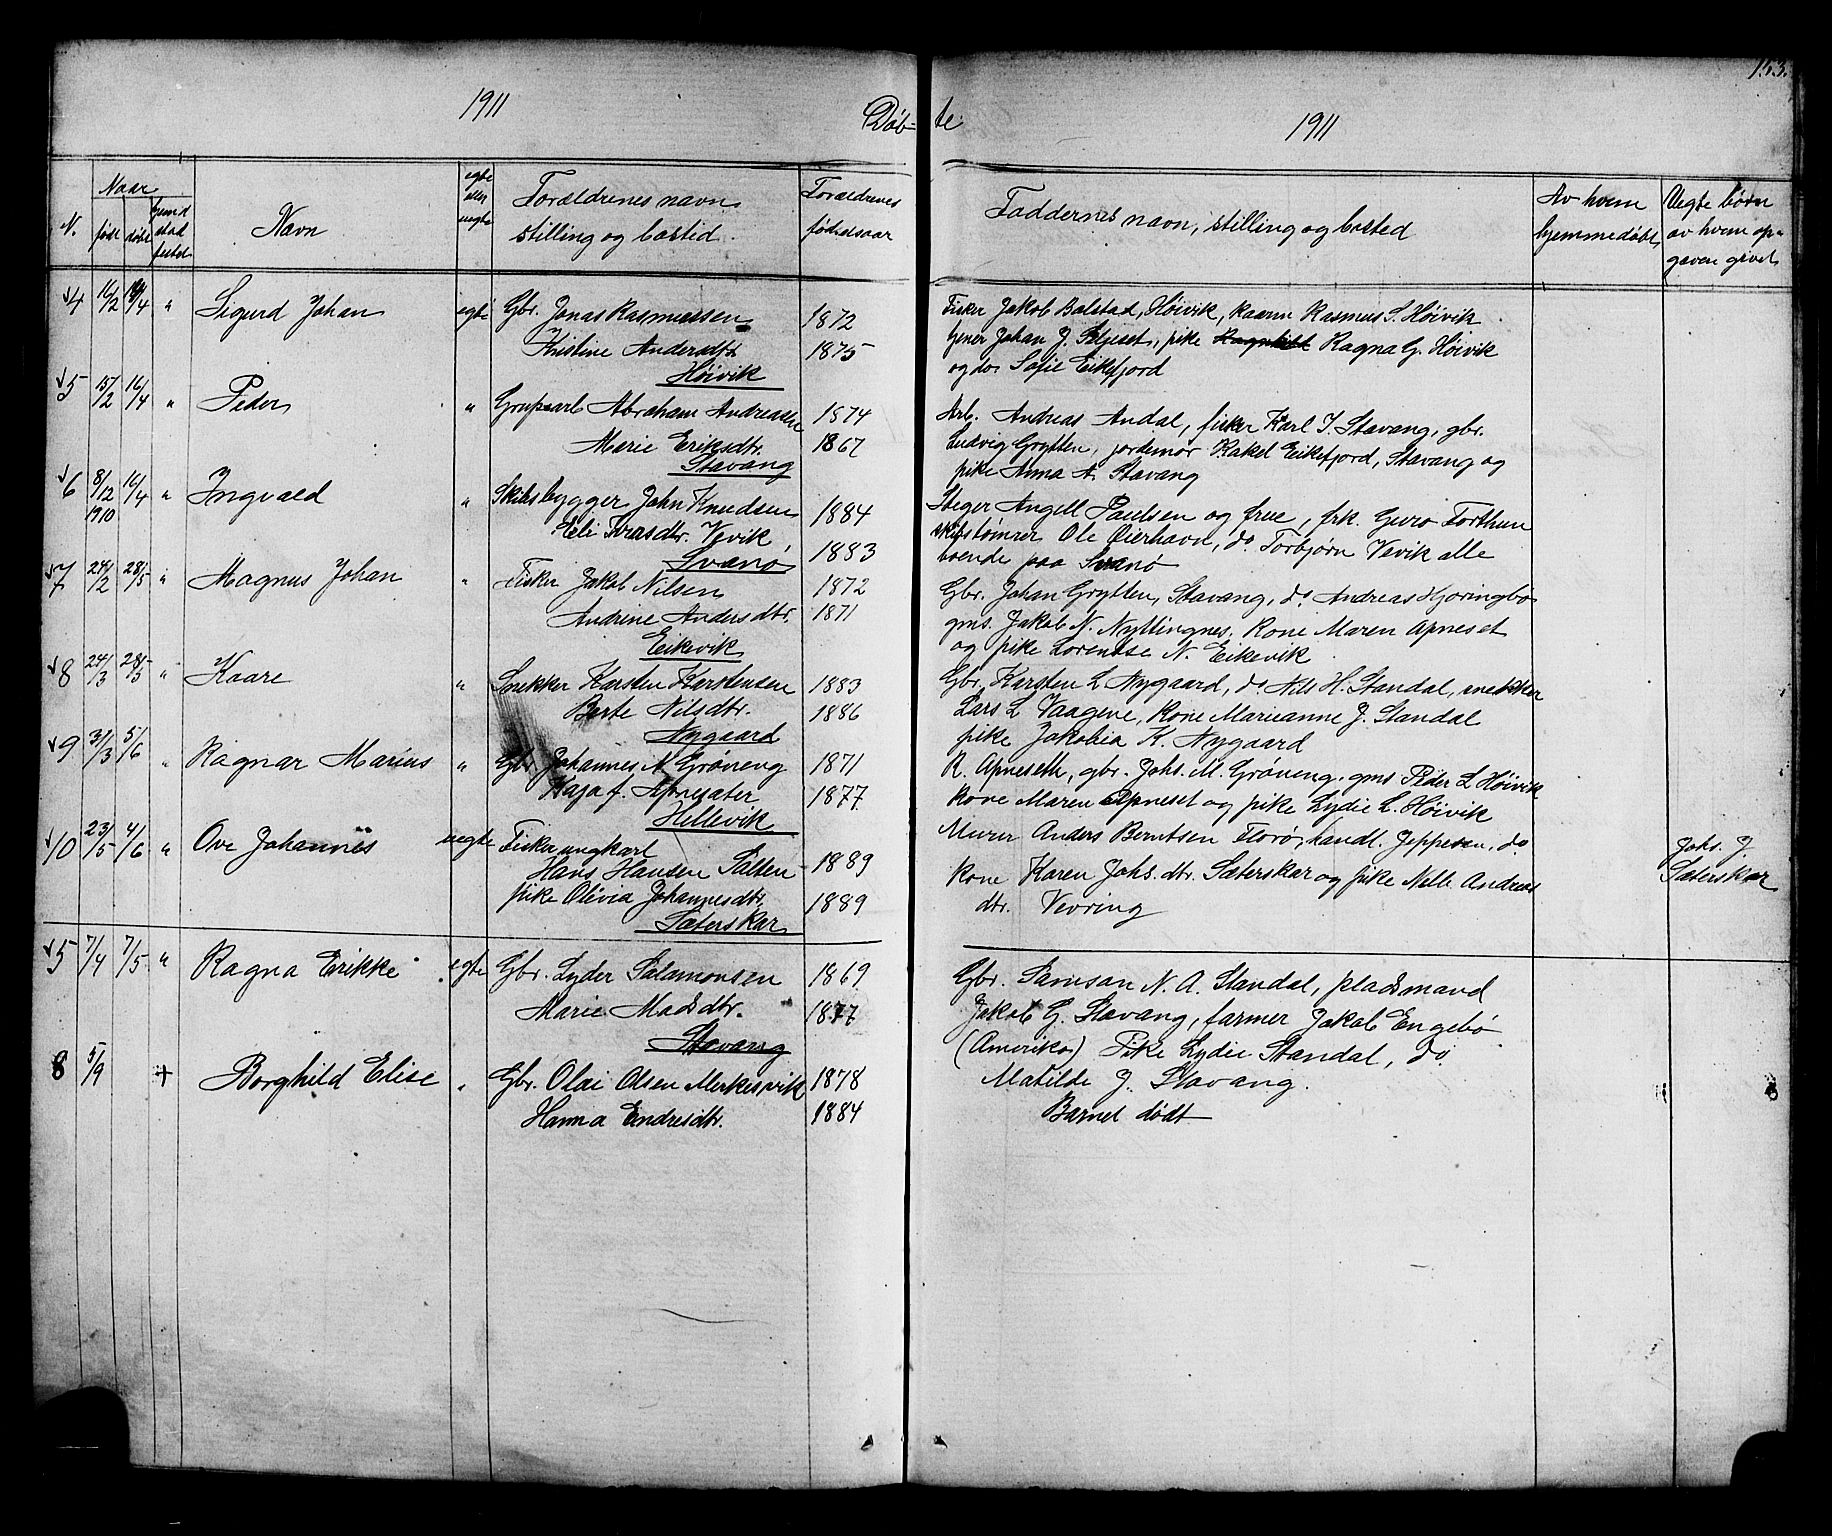 153.
1911
Døb-
te
1911
N.
Naar
født
døbt
hjemd
stad
festet
Navn
egte
eller
uegte
Forældrenes navn,
stilling og bosted.
Forældrenes
fødselsaar
Faddernes navn, stilling og bosted
Av hvem
hjemmedøbt
Uegte børn
av hvem op-
gaven givet
4 16/2 16/4 " Sigurd Johan egte Gbr. Jonas Rasmussen 1872
Kristine Andersdtr 1875
Høivik
Fisker Jakob Balstad, Høivik, kaarm Rasmus S. Høivik
tjener Johan J. Seljeset, pike Ragnhild Ragna G. Høivik
og do Sofie Eikefjord
5 15/2 16/4 " Peder " Grubearb Abraham Andreassen 1874
Marie Eriksdtr. 1867
Stavang
Arb. Andreas Andal, fisker Karl I. Stavang, gbr.
Ludvig Grytten, jordemor Rakel Eikefjord, Stavang og
pike Anna A. Stavang
6 8/12 1910 16/4 " Ingvald " Skibsbygger John Knudsen 1884
Eli Torasdtr. Vevik 1883
Svanø
Steger Angell Paulsen og frue, frk. Guro Forthun
skibstømrer Ole Øierhavn, do Torbjørn Vevik alle
boende paa Svanø
7 24/2 28/5 " Magnus Johan " Fisker Jakob Nilsen 1872
Andrine Andersdtr. 1871
Eikevik
Gbr. Johan Grytten, Stavang, do Andreas Hjoringbo
gms. Jakob N. Nyttingnes, Kone Maren Apneset
og pike Lorentse N. Eikevik
8 24/3 28/5 " Kaare " Snekker Karsten Karstensen 1883
Berte Nilsdtr. 1886
Nygaard
Gbr. Karsten L Nygaard, do Nils H. Standal, snekker
Lars L Vaagene, Kone Marianne J. Standal
pike Jakobia K. Nygaard
9 31/3 5/6 " Ragnar Marius " Gbr Johannes M Grøneng 1871
Kaja f. Apnesæter 1877
Hellevik
R. Apneseth, gbr. Johs. M. Grøneng. gms Peder L Høivik
kone Maren Apneset og pike Lydie L. Høivik
10 23/5 4/6 " Ove Johannes uegte Fisker ungkarl
Hans Hansen Salten 1889
pike Olivia Johannesdtr. 1889
Sæterskar
Murer Anders Berntsen Florø, handl. Jeppesen, do
kone Karen Johs. dtr. Sæterskar og pike Nelli Andreas
dtr. Vevring
Johs. J.
Sæterskar
5 7/4 7/5 " Ragna Erikke egte Gbr. Lyder Salamonsen 1869
Marie Madsdtr. 1877
Stavang
Gbr. Samson N. A. Standal, pladsmand
Jakob G. Stavang, farmer Jakob Engebø
(Amerika) Pike Lydie Standal, do
Matilde J. Stavang.
8 5/9 + Borghild Elise " Gbr. Olai Olsen Merkesvik 1878
Hanna Endresdtr. 1884
Barnet dødt
8